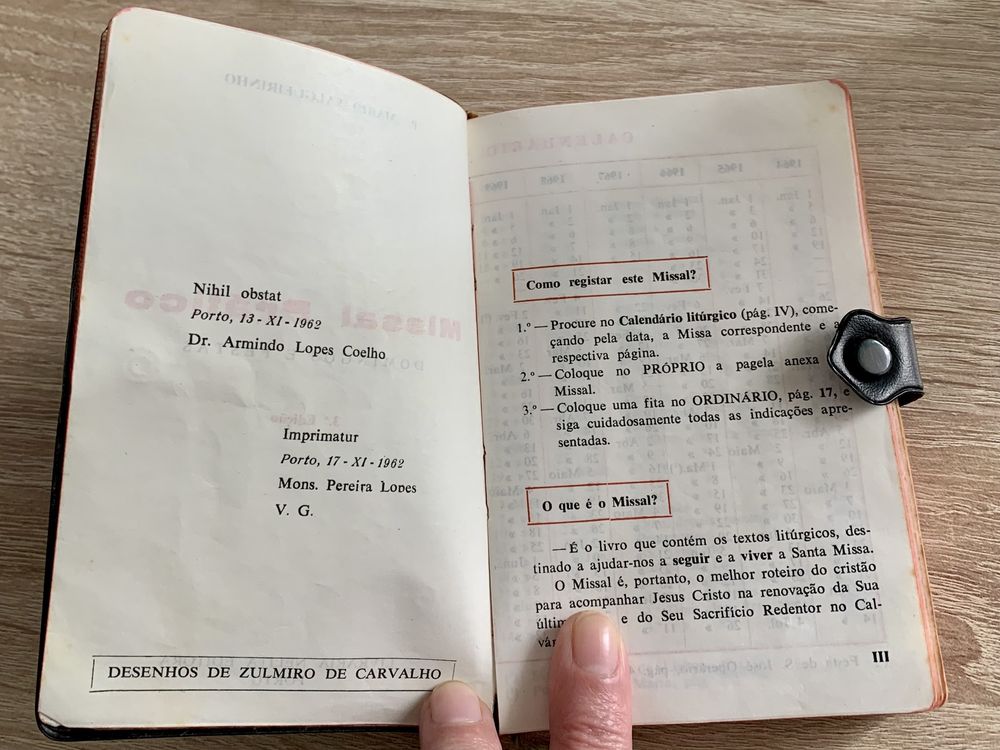 Nihil obstat
Porto, 13 - XI - 1962
Dr. Armindo Lopes Coelho
Imprimatur
Porto, 17 - XI - 1962
Mons. Pereira Lopes
V. G.
DESENHOS DE ZULMIRO DE CARVALHO
Como registar este Missal?
1.º — Procure no Calendário litúrgico (pág. IV), come-
çando pela data, a Missa correspondente e a
respectiva página.
2.º — Coloque no PRÓPRIO a pagela anexa
Missal.
3.º — Coloque uma fita no ORDINÁRIO, pág. 17, e
siga cuidadosamente todas as indicações apre-
sentadas.
O que é o Missal?
— É o livro que contém os textos litúrgicos, des-
tinado a ajudar-nos a seguir e a viver a Santa Missa.
O Missal é, portanto, o melhor roteiro do cristão
para acompanhar Jesus Cristo na renovação da Sua
e do Seu Sacrifício Redentor no Cal-
III